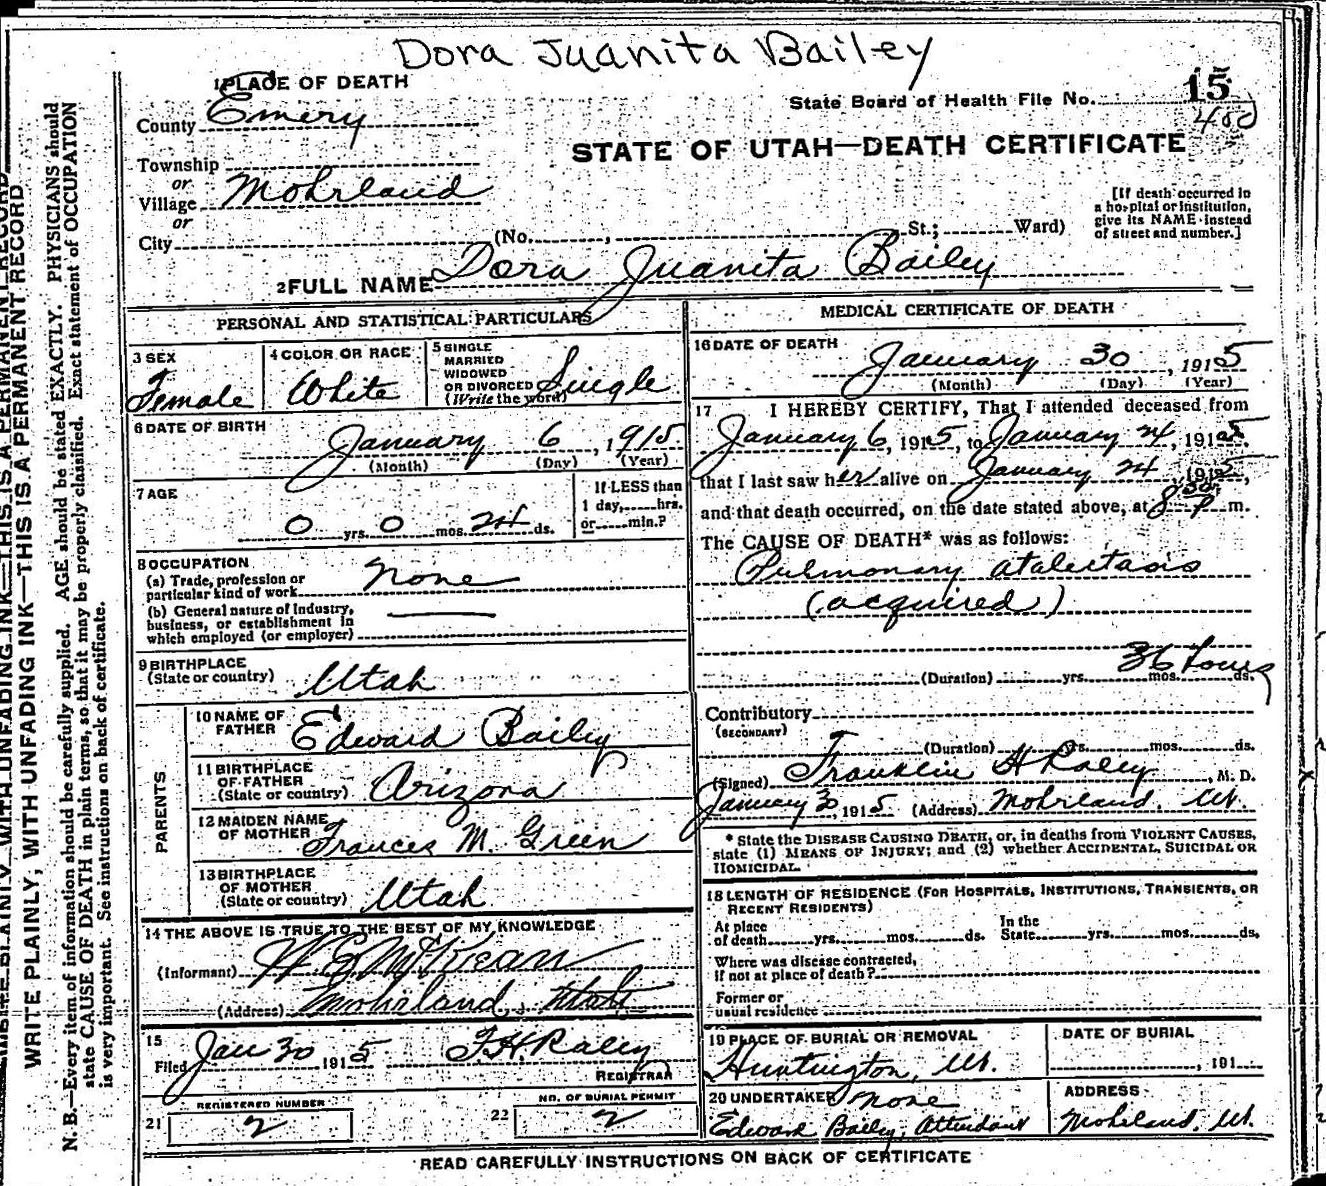 Dora Juanita Bailey
1 PLACE OF DEATH
State Board of Health File No. 15
400
County Emery
STATE OF UTAH—DEATH CERTIFICATE
Township
or
Village Mohrland
or
City (No. , St.; Ward)
[If death occurred in
a hospital or institution,
give its NAME instead
of street and number.]
2 FULL NAME Dora Juanita Bailey
PERSONAL AND STATISTICAL PARTICULARS
3 SEX
Female
4 COLOR OR RACE
White
5 SINGLE
MARRIED
WIDOWED
OR DIVORCED
(Write the word) Single
6 DATE OF BIRTH
January 6, 1915
(Month) (Day) (Year)
7 AGE
0 yrs. 0 mos. 24 ds.
If LESS than
1 day, hrs.
or min.?
8 OCCUPATION
(a) Trade, profession or
particular kind of work none
(b) General nature of Industry,
business, or establishment in
which employed (or employer)
9 BIRTHPLACE
(State or country) Utah
PARENTS
10 NAME OF
FATHER Edward Bailey
11 BIRTHPLACE
OF FATHER
(State or country) Arizona
12 MAIDEN NAME
OF MOTHER Frances M. Green
13 BIRTHPLACE
OF MOTHER
(State or country) Utah
14 THE ABOVE IS TRUE TO THE BEST OF MY KNOWLEDGE
(Informant) McKean
(Address) Mohrland, Utah
15
Filed Jan 30 1915 F.H. Raley
REGISTRAR
REGISTERED NUMBER
21 2
NO. OF BURIAL PERMIT
22 2
MEDICAL CERTIFICATE OF DEATH
16 DATE OF DEATH
January 30, 1915
(Month) (Day) (Year)
17 I HEREBY CERTIFY, That I attended deceased from
January 6, 1915, to January 24, 1915,
that I last saw her alive on January 24, 1915,
and that death occurred, on the date stated above, at 8 30 P m.
The CAUSE OF DEATH* was as follows:
Pulmonary atalectasis
(acquired)
36 hours
(Duration) yrs. mos. ds.
Contributory
(SECONDARY)
(Duration) yrs. mos. ds.
(Signed) Franklin H Raley, M. D.
January 30, 1915 (Address) Mohrland, Ut.
* State the DISEASE CAUSING DEATH, or, in deaths from VIOLENT CAUSES,
state (1) MEANS OF INJURY; and (2) whether ACCIDENTAL, SUICIDAL OR
HOMICIDAL.
18 LENGTH OF RESIDENCE (FOR HOSPITALS, INSTITUTIONS, TRANSIENTS, OR
RECENT RESIDENTS)
At place
of death yrs. mos. ds. In the
State yrs. mos. ds.
Where was disease contracted,
if not at place of death?
Former or
usual residence
19 PLACE OF BURIAL OR REMOVAL
Huntington, Ut.
DATE OF BURIAL
, 191
20 UNDERTAKER none
Edward Bailey, Attendant
ADDRESS
Mohrland, Ut.
READ CAREFULLY INSTRUCTIONS ON BACK OF CERTIFICATE
WRITE PLAINLY, WITH UNFADING INK—THIS IS A PERMANENT RECORD
WRITE PLAINLY, WITH UNFADING INK—THIS IS A PERMANENT RECORD
N. B.—Every item of information should be carefully supplied. AGE should be stated EXACTLY. PHYSICIANS should
state CAUSE OF DEATH in plain terms, so that it may be properly classified. Exact statement of OCCUPATION
is very important. See instructions on back of certificate.